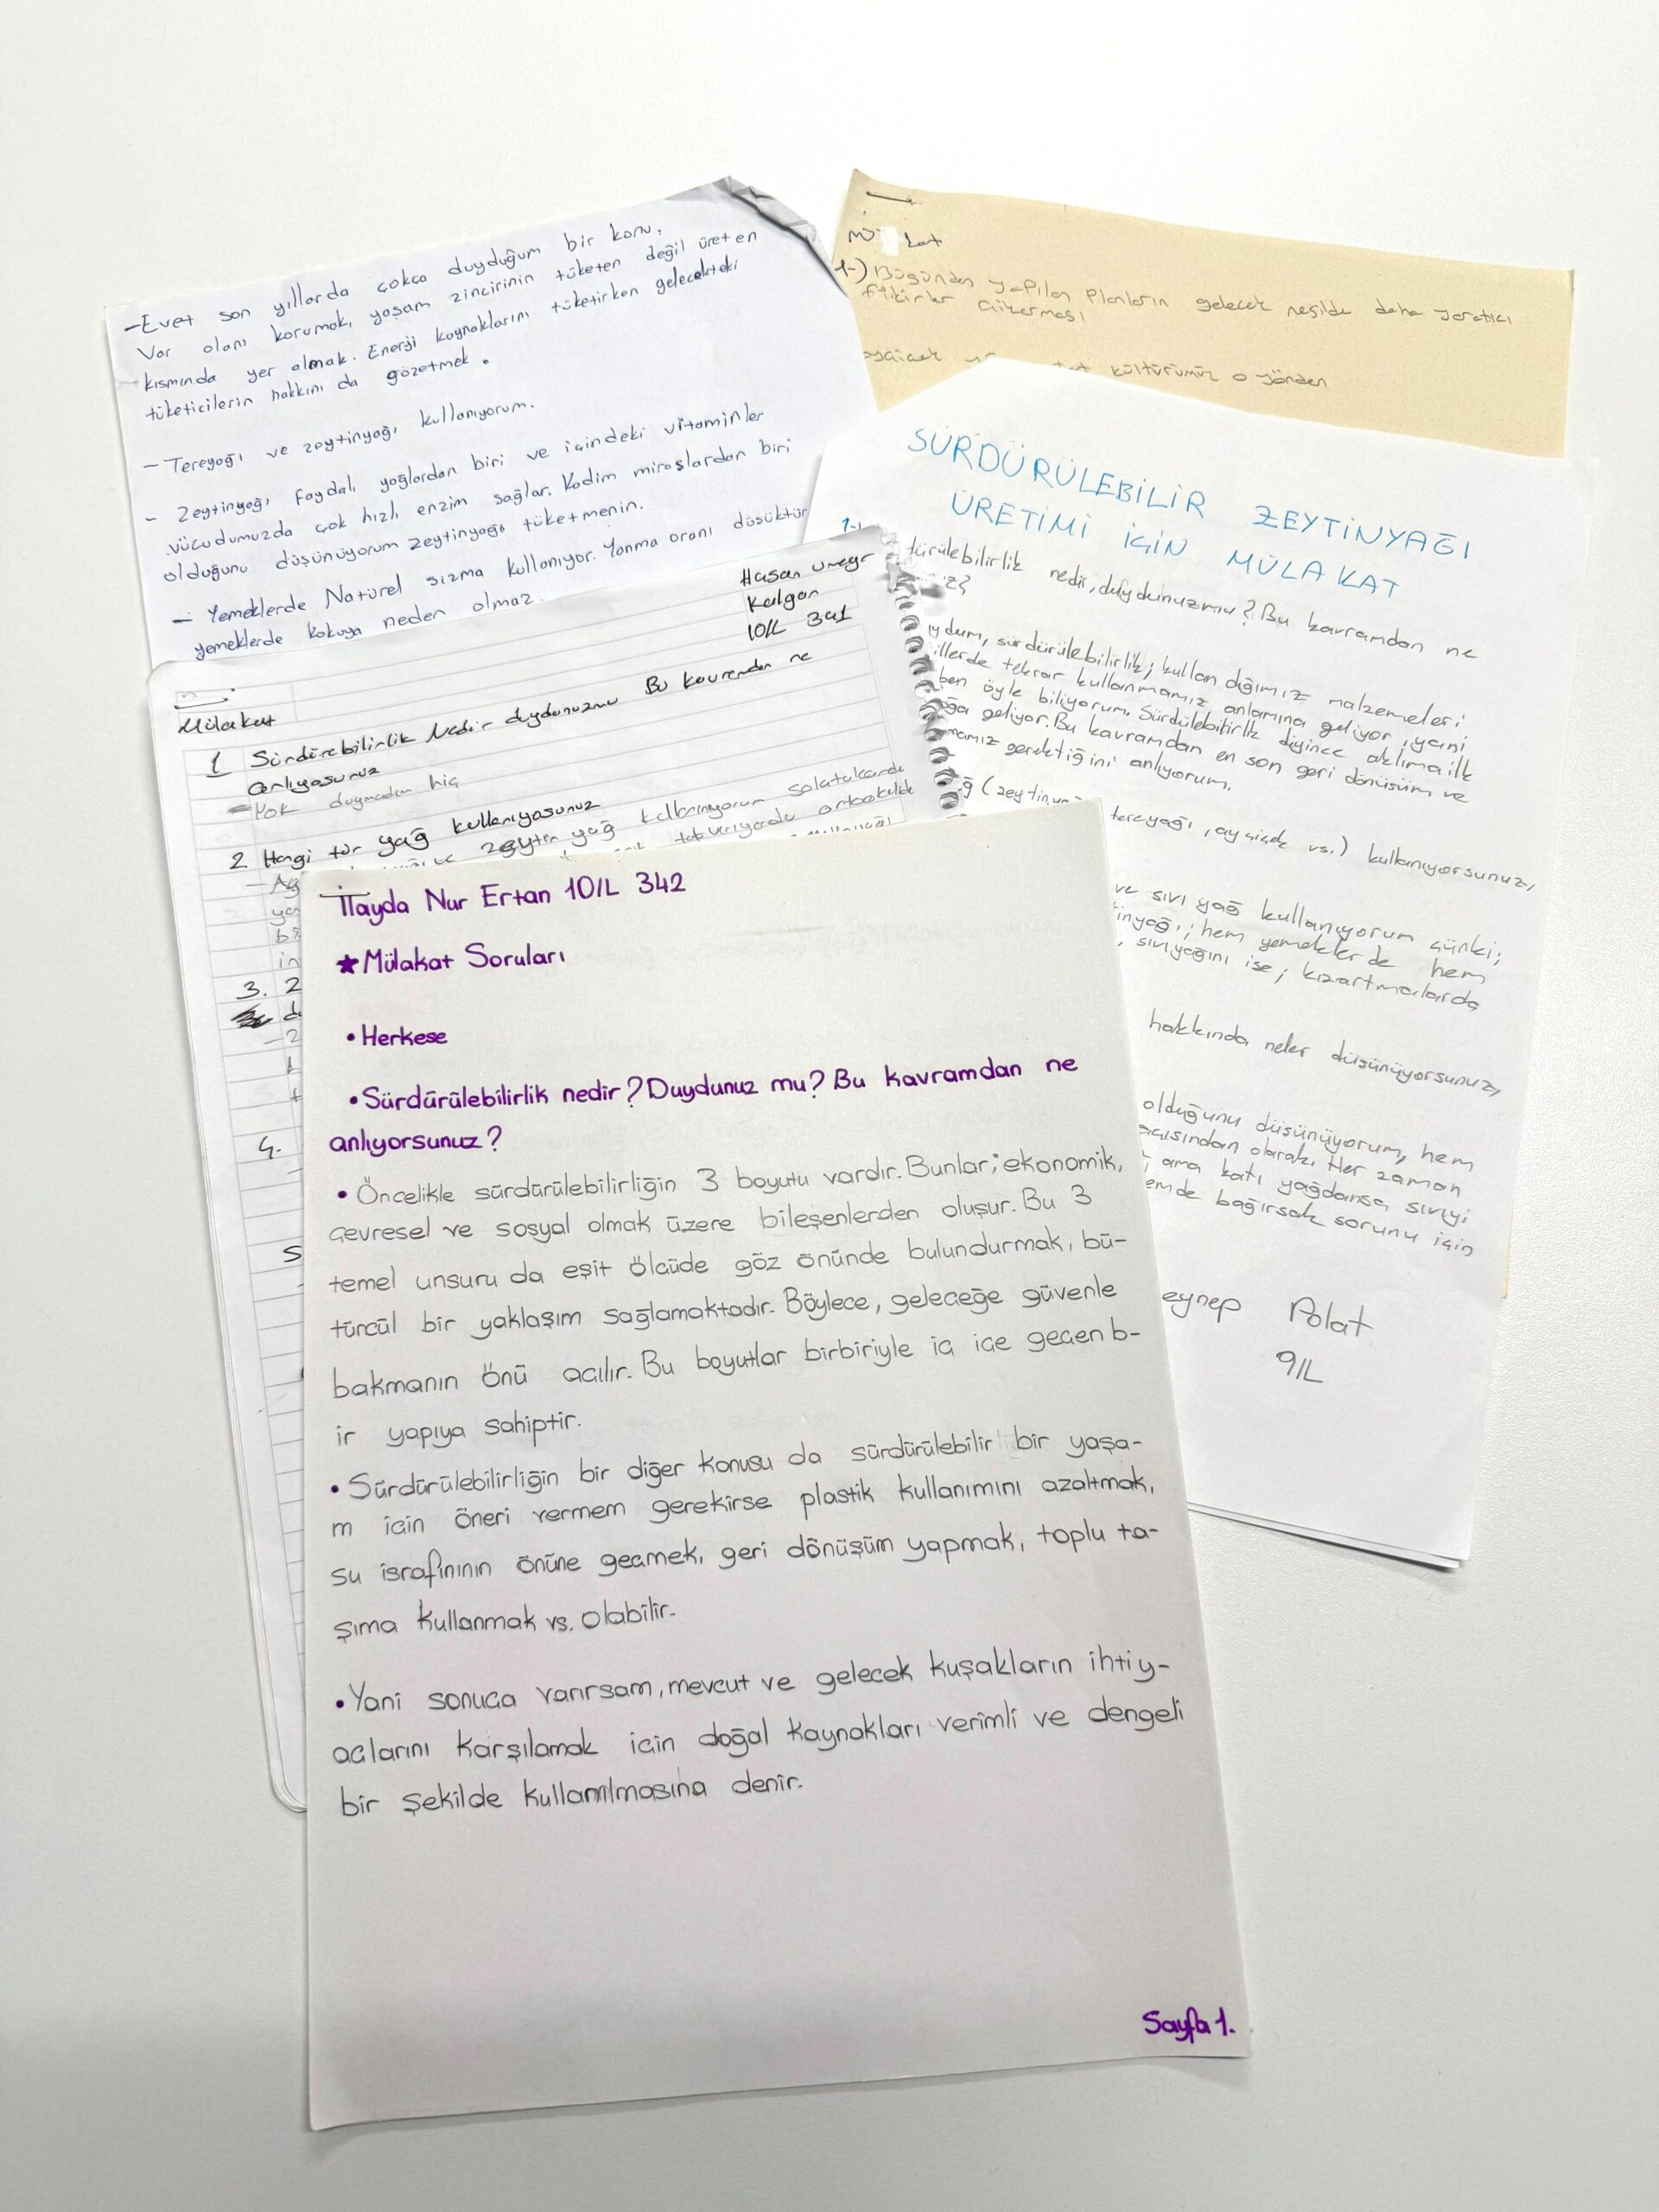 -Evet son yıllarda çokca duyduğum bir konu.
Var olanı korumak, yaşam zincirinin tüketen değil üreten
kısmında yer almak. Enerji kaynaklarını tüketirken gelecekteki
tüketicilerin hakkını da gözetmek.
- Tereyağı ve zeytinyağı kullanıyorum.
- Zeytinyağı faydalı yağlardan biri ve içindeki vitaminler
vücudumuzda çok hızlı enzim sağlar. Kadim miraslardan biri
olduğunu düşünüyorum zeytinyağı tüketmenin.
- Yemeklerde Natürel sızma kullanıyor. Yanma oranı düşüktür
yemeklerde kokuya neden olmaz.
1-) Bugünden yapılan Planların gelecek nesilde daha yaratıcı
fikirler
kültürümüz o yönden
SÜRDÜRÜLEBİLİR ZEYTİNYAĞI
ÜRETİMİ İÇİN MÜLAKAT
1-)
türülebilirlik nedir, duydunuzmu? Bu kavramdan ne
ydum, sürdürülebilirlik; kullandığımız malzemeleri
illerde tekrar kullanmamız anlamına geliyor, yani
ben öyle biliyorum. Sürdülebitirlk diyince aklıma ilk
ğa geliyor. Bu kavramdan en son geri dönüşüm ve
mamız gerektiğini anlıyorum.
tereyağı, ayçiçek vs.) kullanıyorsunuz,
ve sıvı yağ kullanıyorum çünki;
tinyağı; hem yemeklerde hem
, sıvıyağını ise; kızartmalarda
hakkında neler düşünüyorsunuz,
olduğunu düşünüyorum, hem
açısından olarak. Her zaman
, ama katı yağdansa sıvıyı
emde bağırsak sorunu için
eynep Polat
9/L
Hasan
Kalgan
10/L 341
Mülakat
1 Sürdürebilirlik Nedir duydunuzmu Bu kavramdan ne
anlıyosunuz
-Yok duymadım hiç
2 Hangi tür yağ kullanıyosunuz
zeytin yağ kullanıyorum salatalarda
3. 2
4.
5
İlayda Nur Ertan 10/L 342
★Mülakat Soruları
•Herkese
•Sürdürülebilirlik nedir? Duydunuz mu? Bu kavramdan ne
anlıyorsunuz?
•Öncelikle sürdürülebilirliğin 3 boyutu vardır. Bunlar; ekonomik,
çevresel ve sosyal olmak üzere bileşenlerden oluşur. Bu 3
temel unsuru da eşit ölçüde göz önünde bulundurmak, bü-
türcül bir yaklaşım sağlamaktadır. Böylece, geleceğe güvenle
bakmanın önü açılır. Bu boyutlar birbiriyle iç içe geçen b-
ir yapıya sahiptir.
•Sürdürülebilirliğin bir diğer konusu da sürdürülebilir bir yaşa-
m için öneri vermem gerekirse plastik kullanımını azaltmak,
su israfınının önüne geçmek, geri dönüşüm yapmak, toplu ta-
şıma kullanmak vs. olabilir.
•Yani sonuca varırsam, mevcut ve gelecek kuşakların ihtiy-
açlarını karşılamak için doğal kaynakları verimli ve dengeli
bir şekilde kullanılmasına denir.
Sayfa 1.